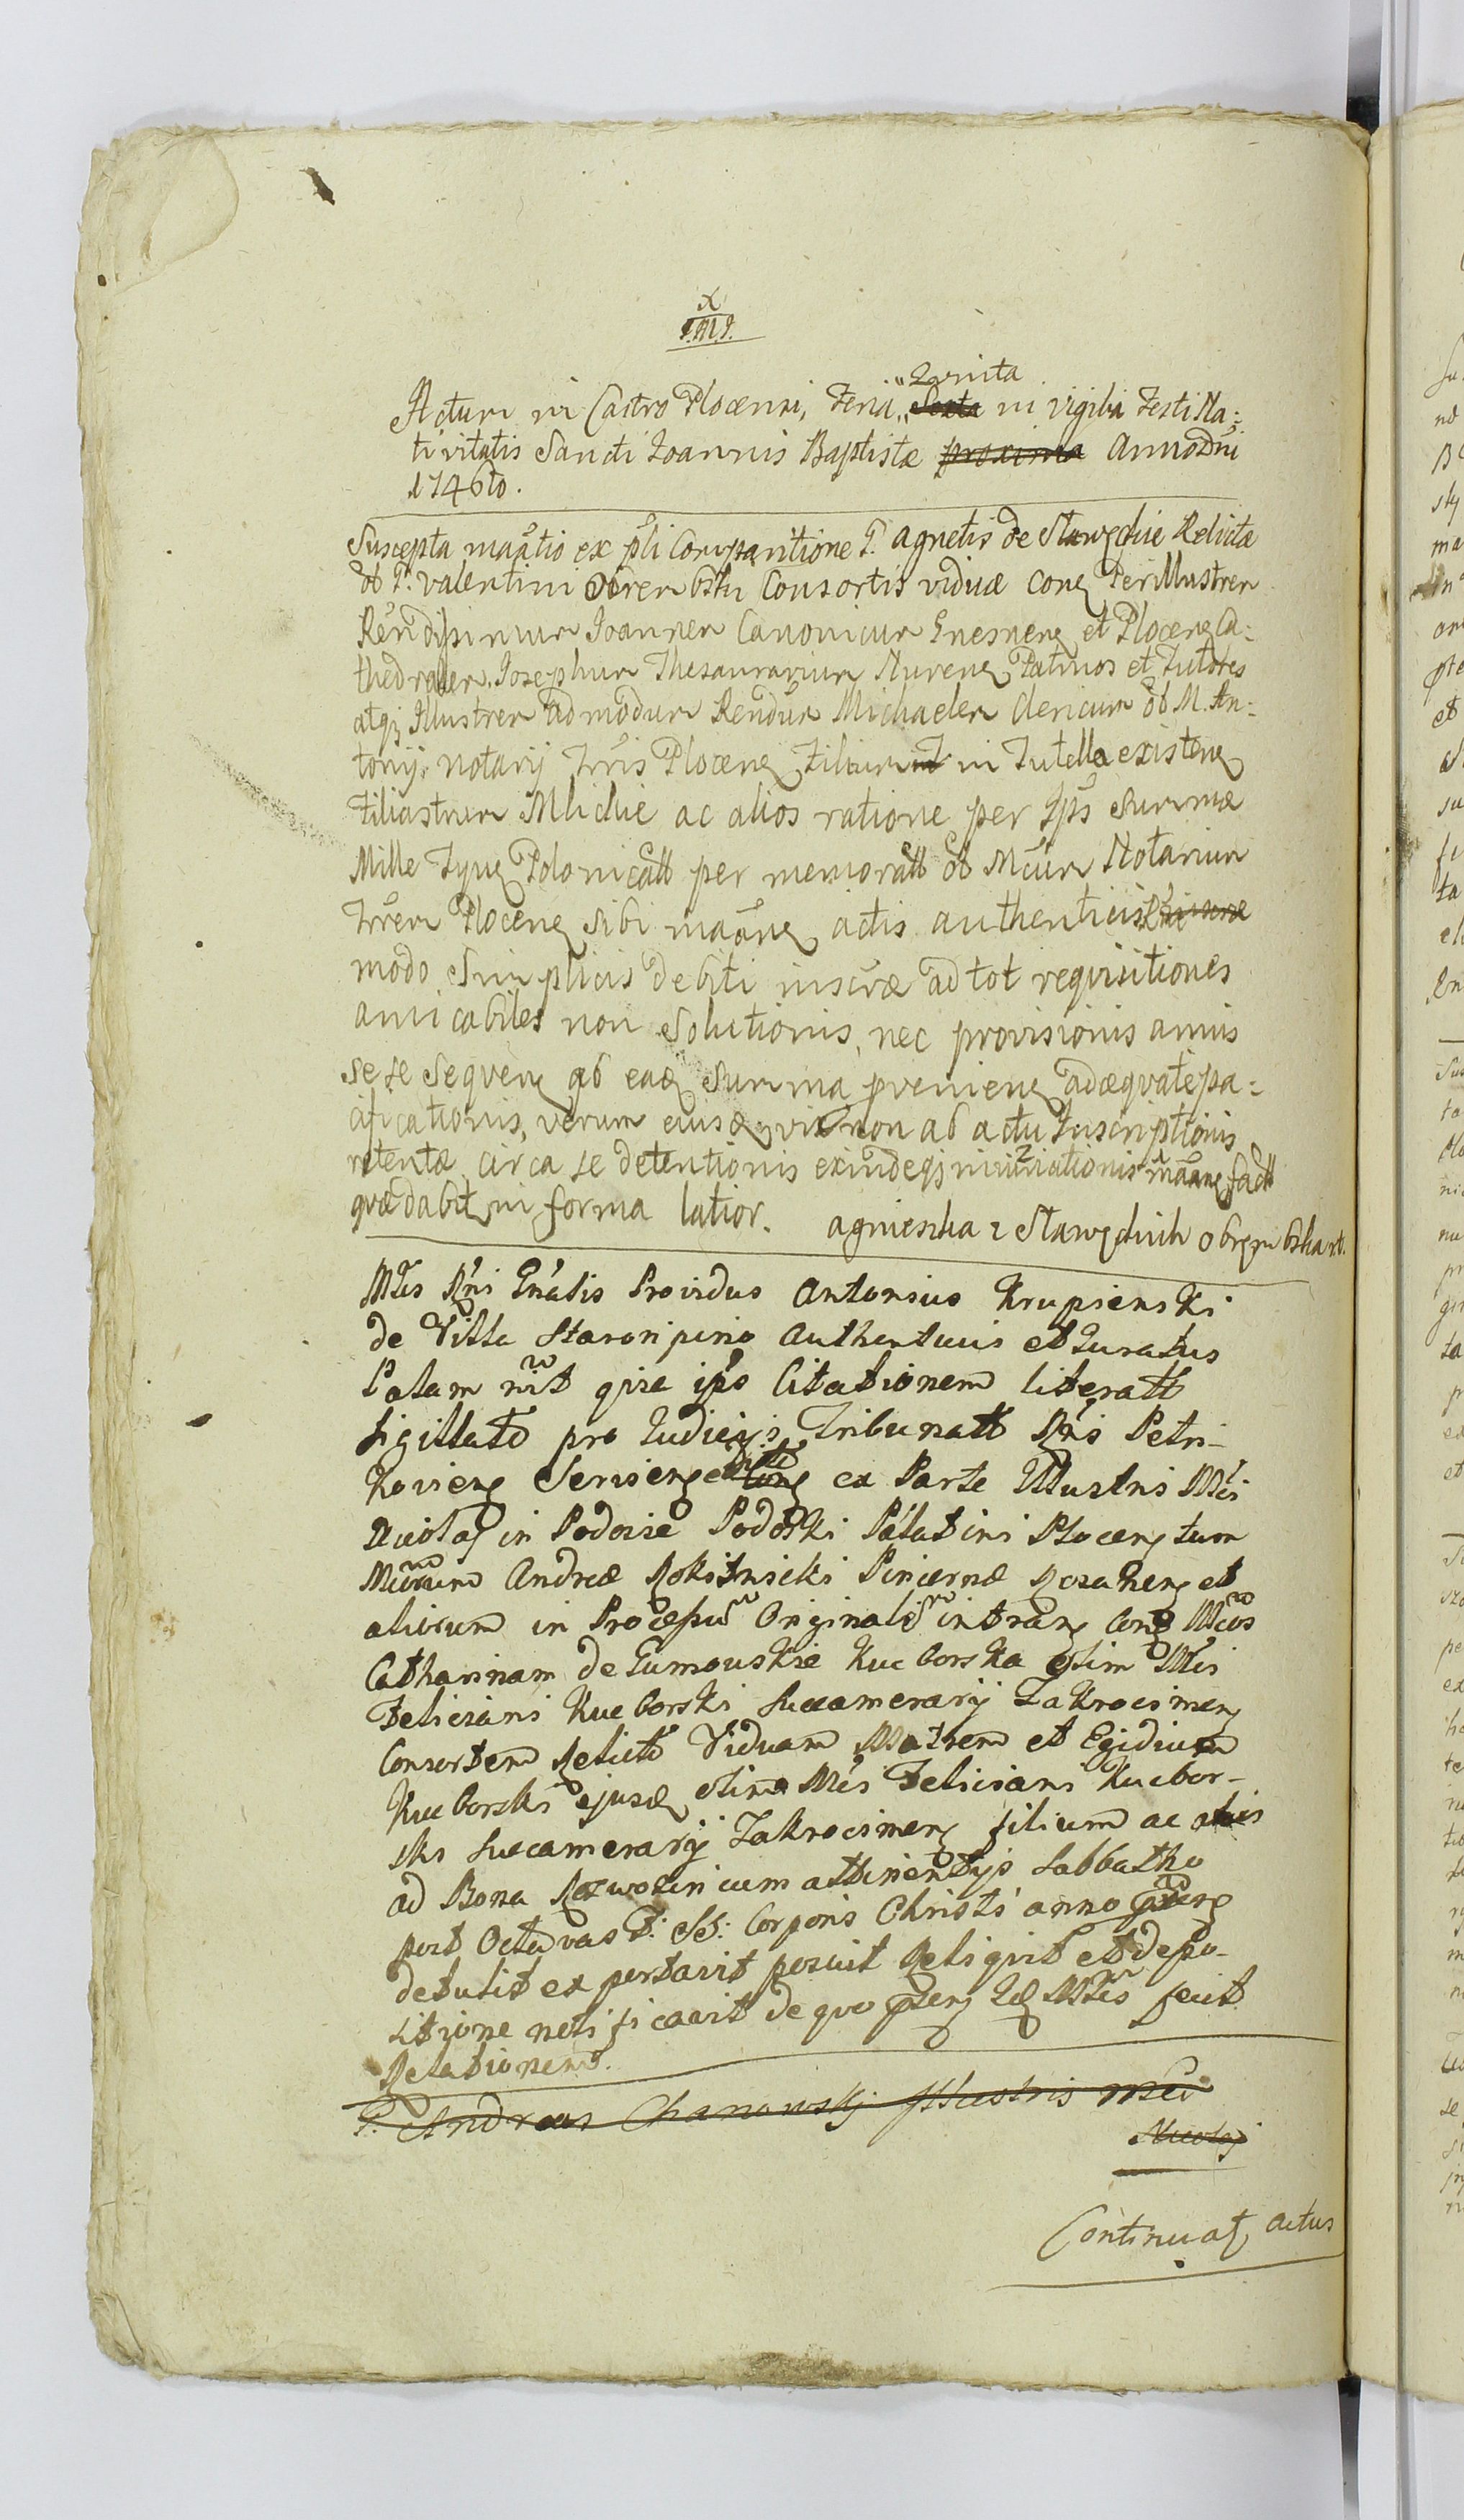 X
I.M.I.
Quinta
Actum in Castro Plocensi, Feria Sexta in vigilia Festi Na:
tivitatis Sancti Joannis Baptistæ proxima Anno Dni
1746to.
Suscepta maãtio ex pli Comparitione G. Agnetis de Stawęckie Relictæ
ol G. Valentini Consortis viduæ con Perillustrem
Rendissimum Joannem Canonicum Gnesnen et Plocen Ca:
thedralem, Josephum Thesaurarium Nuren Patruos et Tutores
atq Illustrem admodum Rendum Michaelem Clericum ol M. An:
tonij notarij Trris Plocen Filium in Tutella existen
Filiastrum Mlickie ac alios ratione per Ips Summæ
Mille Tyn Polonicall per memoratt ol Mcum Notarium
Trrem Plocen sibi actis authenticis
modo Simplicis debiti inscræ ad tot requisitiones
amicabiles non Solutionis, nec provisionis annis
sese Sequen ab ead Summa pvenien adæqvate pa:
cificationis, verum eiusd vix non ab actu Inscriptionis
retentæ circa se detentionis exindeq factt
qvæ dabit in forma latior. Agnieszka z Stawęckich
Mtis Rni Gnalis Providus Antonius Krupienski
de Villa Staroripino Authenticus et Juratus
Palam rit qvia ips Citationem literatt
sigillatt pro Judicijs Tribunatt Rni Petri-
kovien ex Parte Illustris Mci
Nicolaj in Podosie Podoski Palatini Plocen tum
Mcorum Andreæ Rokitnicki Pincernæ Rozanen et
aliorum in Processu Originali intran Con Mcos
Catharinam de Sumouskie Kucborska olim Mci
Feliciani Kucborski Succamerarij Zakrocimen
Consortem Relictt Viduam Matrem et Egidium
Kucborski ejusd olim Mci Feliciani Kucbor-
ski Succamerarij Zakrocimen filium ac alios
ad Bona Rozwozin cum attinentijs Sabbatho
post Octavas F: SS: Corporis Christi anno
detulit ex portavit posuit Reliqvit et depo-
sitione notificavit de qvo fecit
Relationem.
G. Andreas Chanowskj Illustris Mci
Nicolaj
Continuat actus